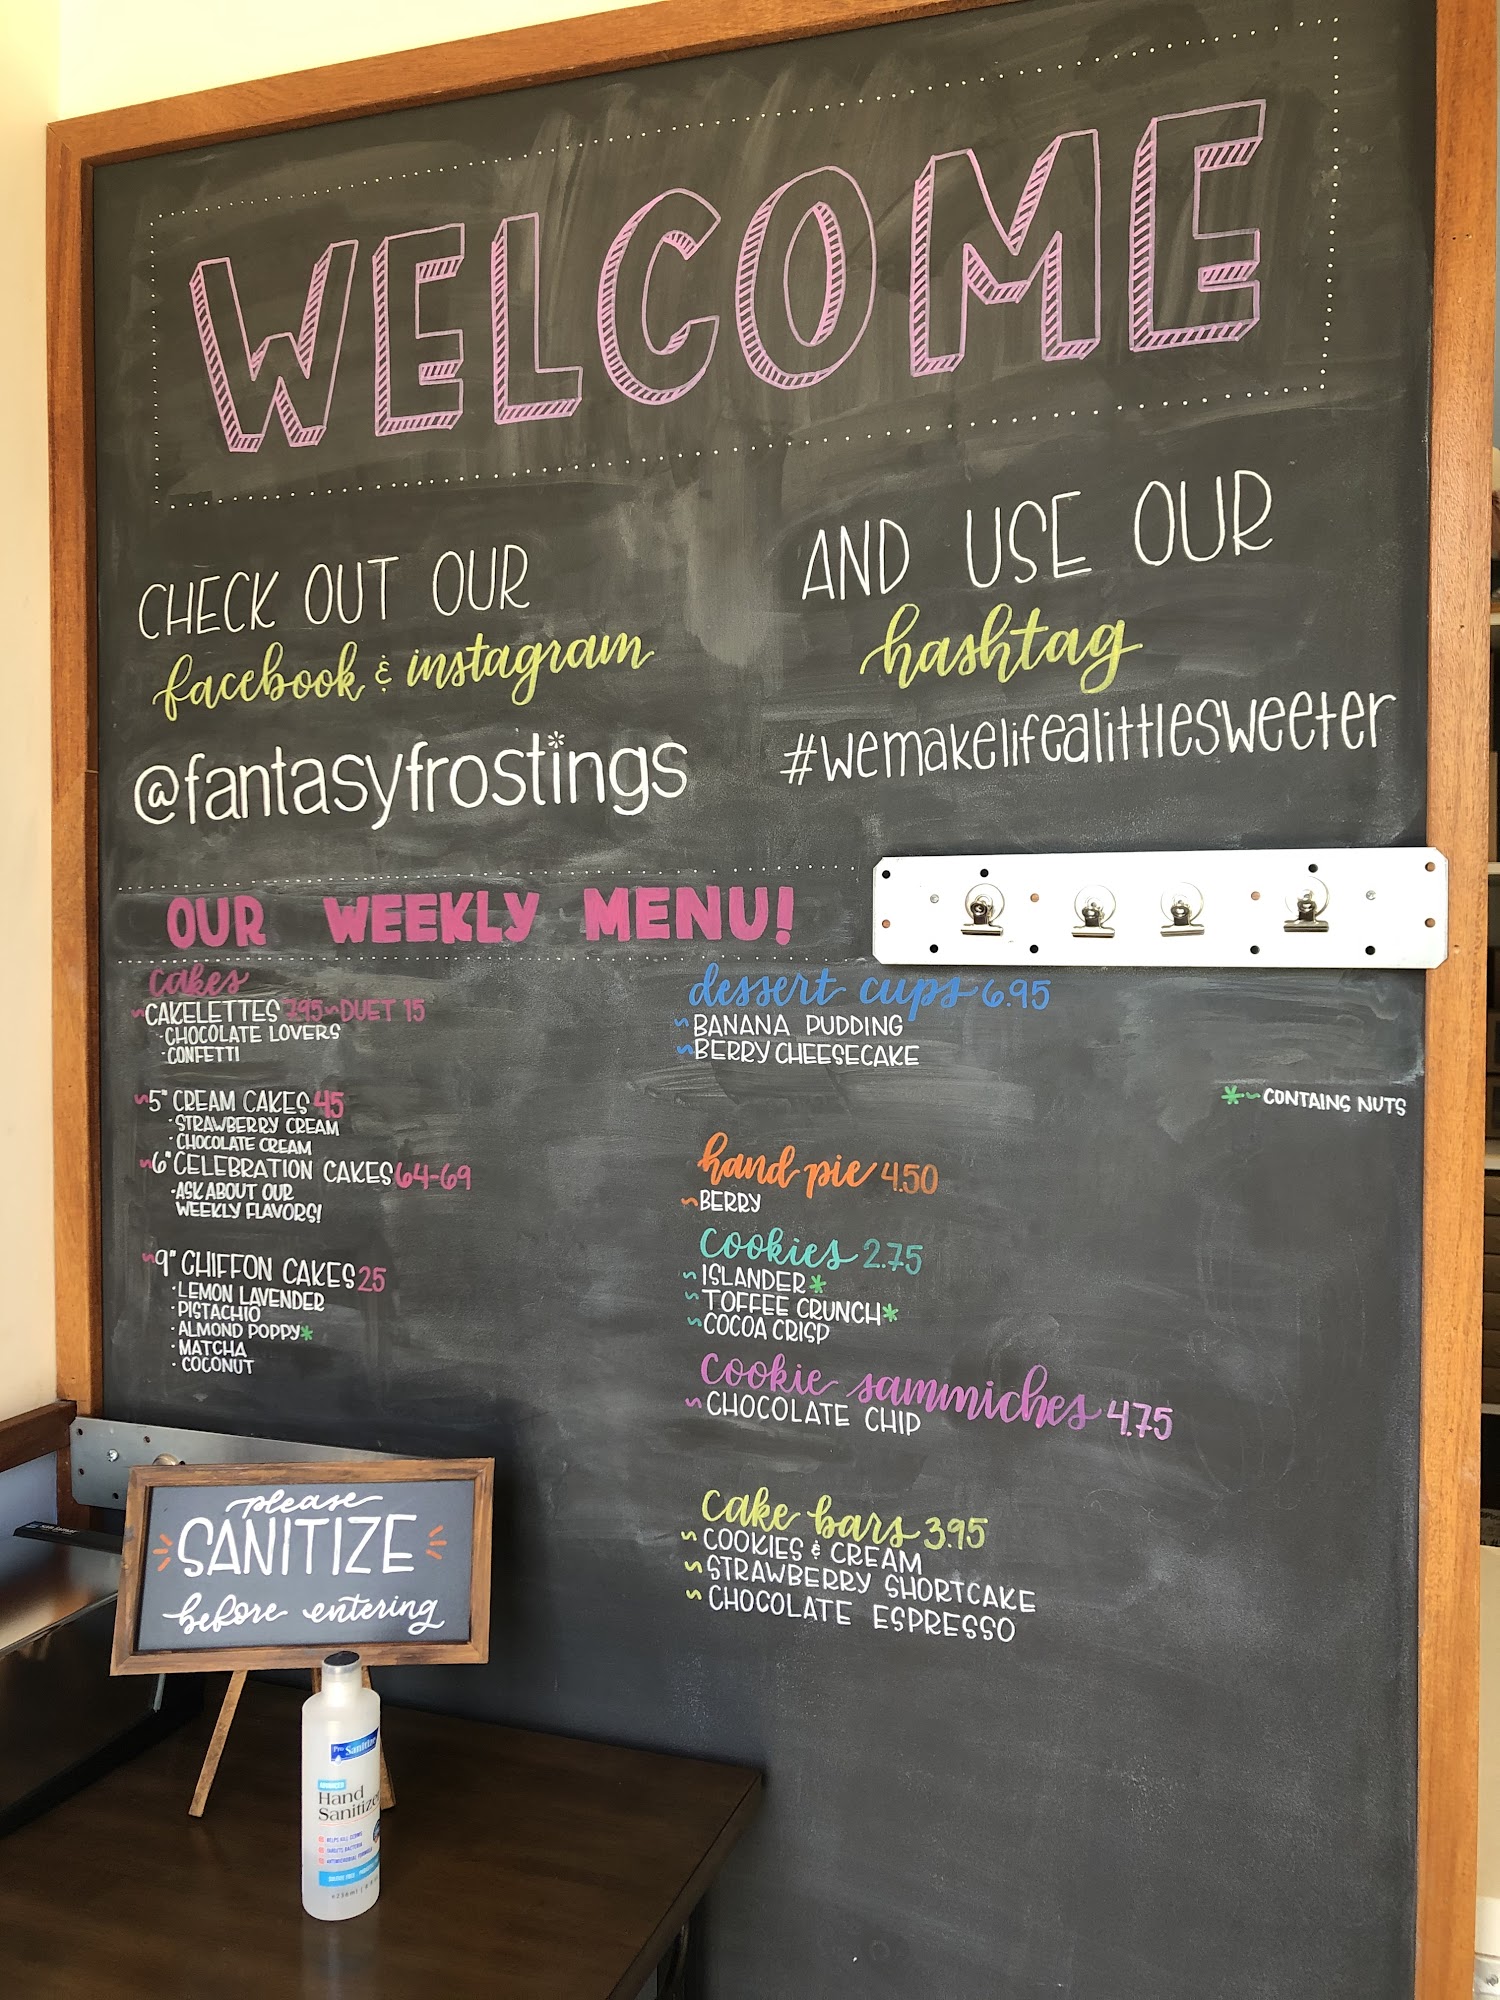 WELCOME
CHECK OUT OUR
facebook & instagram
@fantasyfrostings
AND USE OUR
hashtag
#wemakelifealittlesweeter
OUR WEEKLY MENU!
cakes
~CAKELETTES 7.95~DUET 15
·CHOCOLATE LOVERS
·CONFETTI
~5" CREAM CAKES 45
·STRAWBERRY CREAM
·CHOCOLATE CREAM
~6" CELEBRATION CAKES 64-69
·ASK ABOUT OUR
WEEKLY FLAVORS!
~9" CHIFFON CAKES 25
·LEMON LAVENDER
·PISTACHIO
·ALMOND POPPY*
·MATCHA
·COCONUT
dessert cups 6.95
~BANANA PUDDING
~BERRY CHEESECAKE
*~CONTAINS NUTS
hand pie 4.50
~BERRY
cookies 2.75
~ISLANDER*
~TOFFEE CRUNCH*
~COCOA CRISP
cookie sammiches 4.75
~CHOCOLATE CHIP
cake bars 3.95
~COOKIES & CREAM
~STRAWBERRY SHORTCAKE
~CHOCOLATE ESPRESSO
please
SANITIZE
before entering
Pro
Sanitize
ADVANCED
Hand
Sanitizer
HELPS KILL GERMS
TARGETS BACTERIA
ANTIMICROBIAL FORMULA